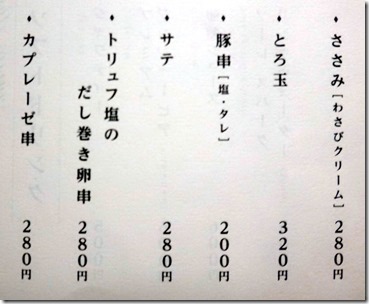 ♦ささみ[わさびクリーム] 280円
♦とろ玉 320円
♦豚串[塩・タレ] 200円
♦サテ 280円
♦トリュフ塩の
だし巻き卵串 280円
♦カプレーゼ串 280円